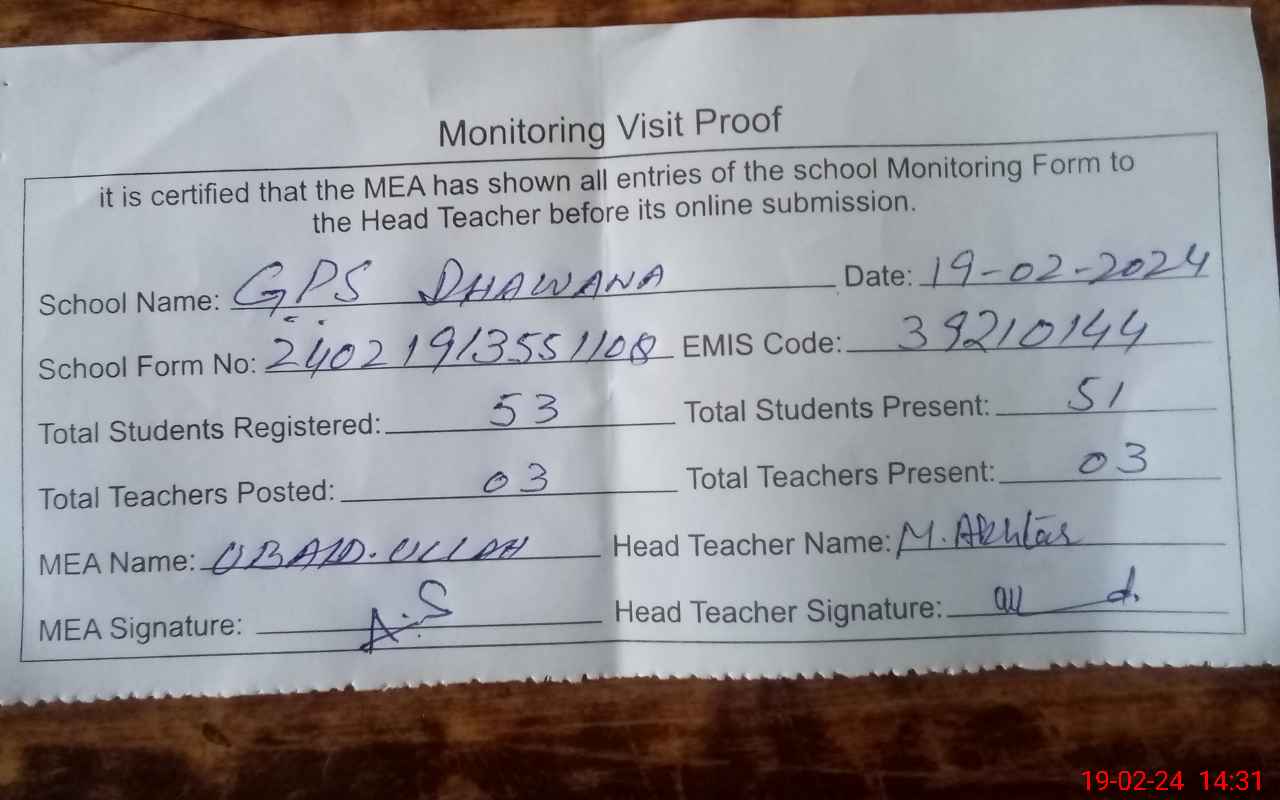 Monitoring Visit Proof
it is certified that the MEA has shown all entries of the school Monitoring Form to
the Head Teacher before its online submission.
School Name: GPS DHAWANA Date: 19-02-2024
School Form No: 24021913551108 EMIS Code: 39210144
Total Students Registered: 53 Total Students Present: 51
Total Teachers Posted: 03 Total Teachers Present: 03
MEA Name: UBAID.ULLAH Head Teacher Name: M. Akhtar
MEA Signature: Head Teacher Signature:
19-02-24 14:31